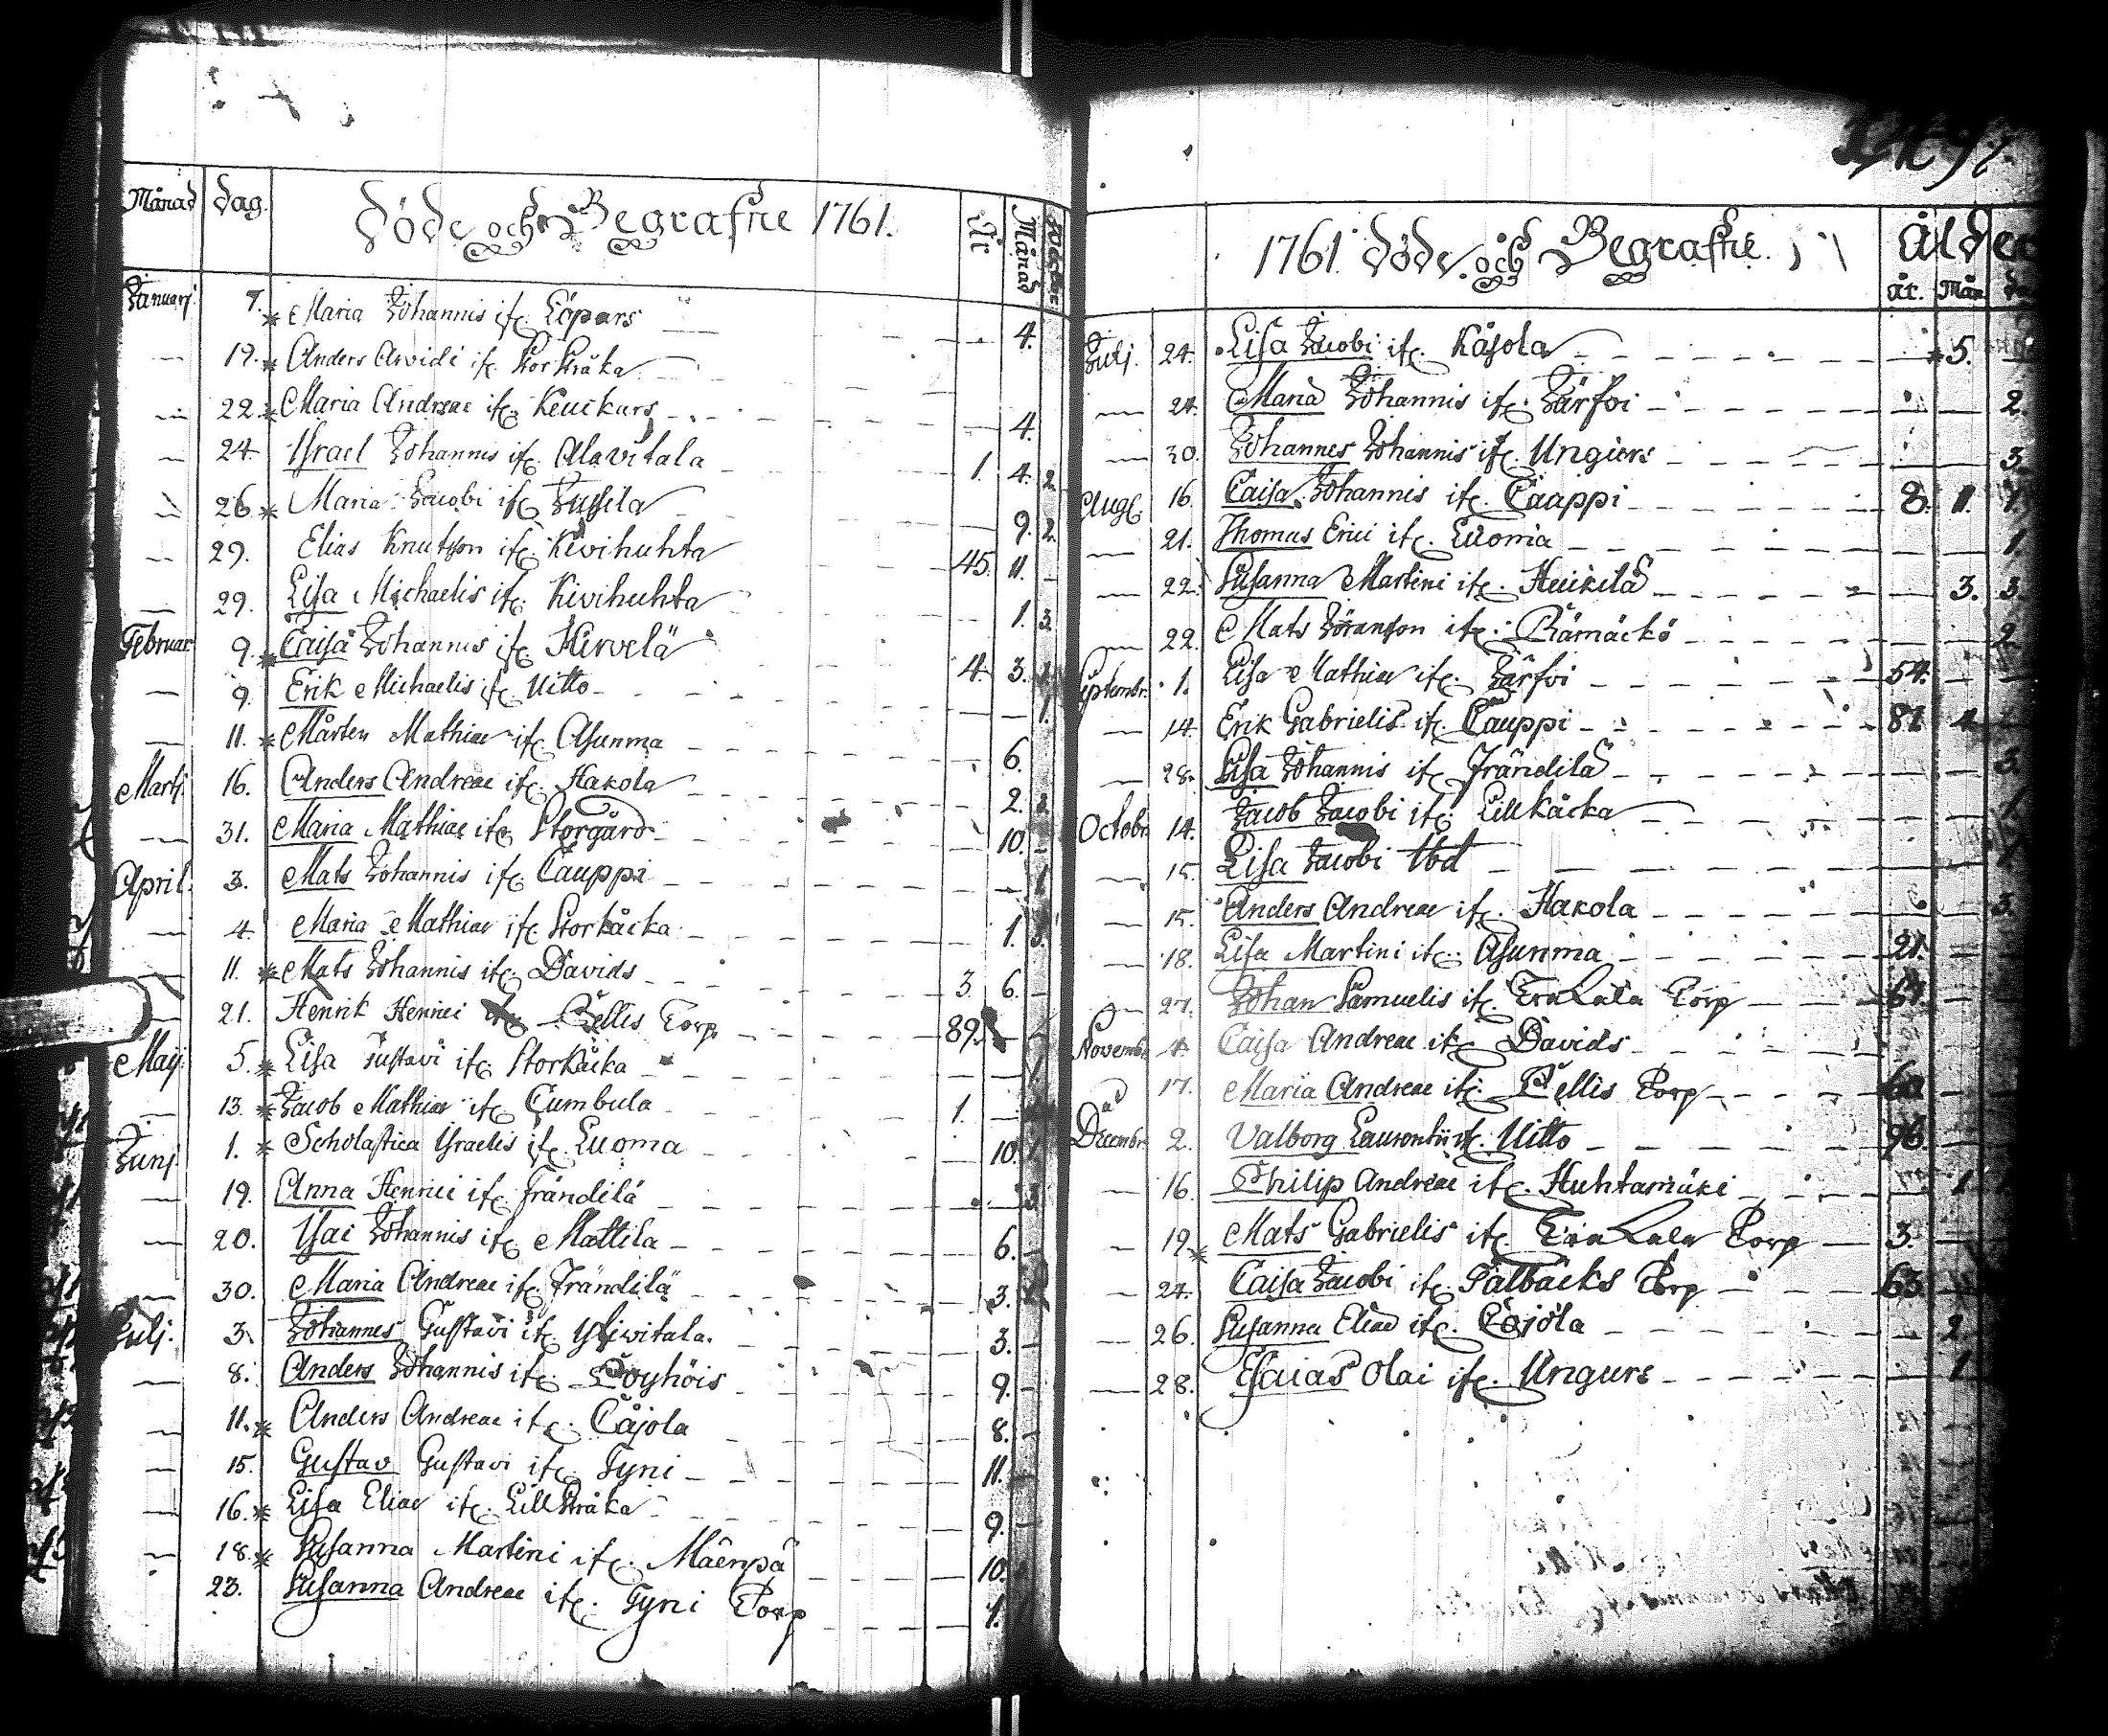 Månad Dag. Döde och Begrafne 1761. År Månad
Januarj. 7. * Maria Johannis if. Löpars 4.
19. * Anders Arvidi if. Storkråka
22. * Maria Andreae if. Keuckurs 4.
24 Israel Johannis if. Alavitala 1. 4. 2.
26 * Maria Jacobi if. Jussila 9. 2.
29. Elias Knutsson if. Kivihuhta 45. 11.
29. Lisa Michaelis if. Kivihuhta 1. 3.
Februar 9. * Caisa Johannis if. Hirvelä 4. 3.
9. Erik Michaelis if. Uitto 1.
11. * Mårten Mathiae if. Asunma 6.
Martj. 16. Anders Andreae if. Hakola 2. 2.
31. Maria Mathiae if. Storgård 10.
April. 3. Mats Johannis if. Cauppi 1
4. Maria Mathiae if. Storkåcka 1. 3.
11. * Mats Johannis if. Davids 3 6.
21. Henrik Henrici Pellis Torp 89.
Maij 5. * Lisa Gustavi if. Storkåcka 1.
13. * Jacob Mathiae if. Cumbula 1.
Junj. 1. * Scholastica Israelis if. Luoma 10. 1
19. Anna Henrici if. Frändilä 3
20. Isai Johannis if. Mattila 6.
30. Maria Andreae if. Frändilä 3.
Julj. 3. Johannes Gustavi if. Yliwitala. 3.
8. Anders Johannis if. Poyhöis 9.
11. * Anders Andreae if. Cajola 8.
15. Gustav Gustavi if. Tyni 11.
16. * Lisa Eliae if. Lillkråka 9.
18. * Susanna Martini if. Mäenpä 10.
23. Susanna Andreae if. Tyni Torp 1.
97.
1761. Döde och Begrafne. Ålder
År. Mån.
Julj. 24. Lisa Jacobi if. Kåjola 5.
24. Maria Johannis if. Järfvi 2.
30. Johannes Johannis if. Ungiers 3.
Aug. 16. Caisa Johannis if. Caappi 8. 11. 1.
21. Thomas Erici if. Luoma 1.
22. Susanna Martini if. Heickilä 3. 3.
22. Mats Göranson if. Rämäckö 2
Septembr. 1. Lisa Mathiae if. Järfvi 54.
14. Erik Gabrielis if. Cauppi 87.
28. Lisa Johannis if. Frändilä 3.
Octobr. 14. Jacob Jacobi if. Lillkåcka 1.
15. Lisa Jacobi Ibd
15. Anders Andreae if. Hakola 3.
18. Lisa Martini if. Asunma 21.
27. Johan Samuelis if. EraLala Torp 67.
Novembr. 4. Caisa Andreae if. Davids
17. Maria Andreae if. Pellis Torp 60
Decembr. 2. Valborg Laurentii if. Uitto 96.
16. Philip Andreae if. Huhtamäki 1
19. * Mats Gabrielis if. EraLala Torp 3.
24. Caisa Jacobi if. Palbäcks Torp 63.
26. Susanna Eliae if. Cojola 2.
28. Esaias Olai if. Ungurs 1.